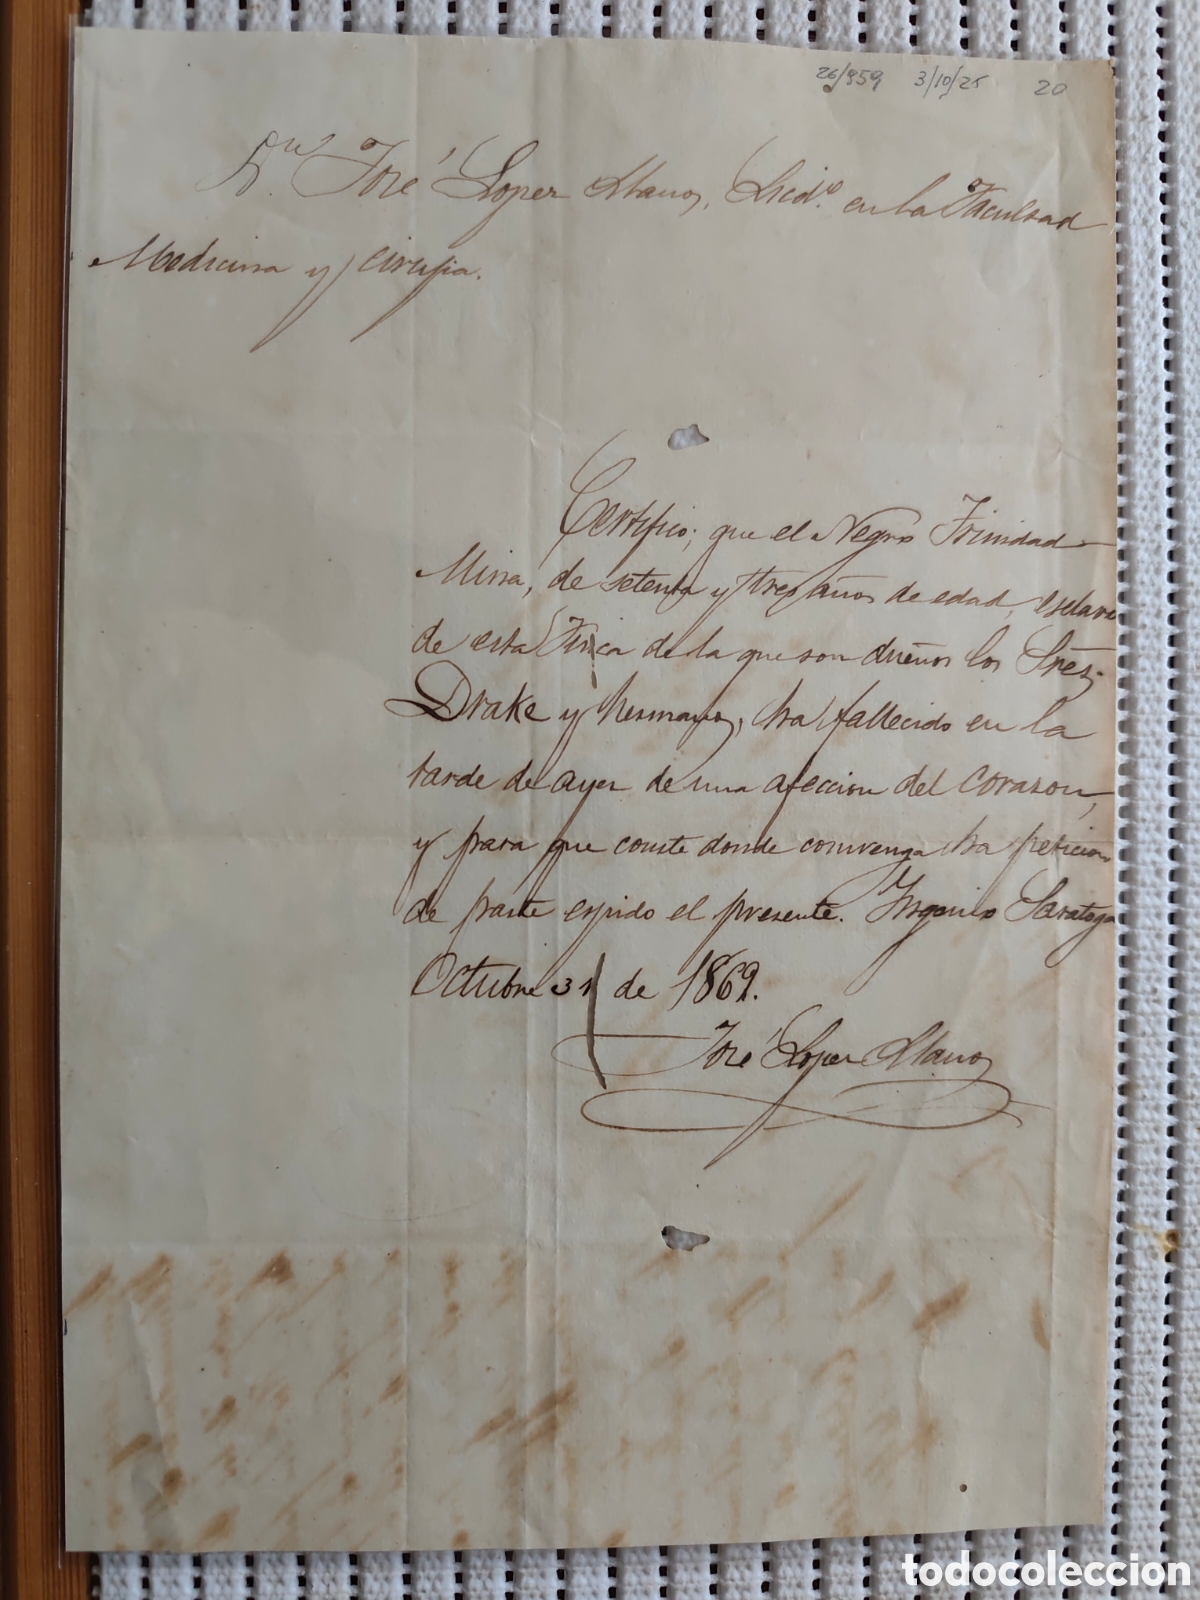 26/959 3/10/25 20
Dn. José Lopez Llanos, Licdo. en la Facultad
Medicina y cirujia.
Certifico; que el Negro Trinidad
Mina, de setenta y tres años de edad, esclavo
de esta Finca de la que son dueños los Sres.
Drake y hermanos, ha fallecido en la
tarde de ayer de una afeccion del corazon,
y para que conste donde convenga ha peticion
de parte espido el presente. Ingenio Saratoga
Octubre 31 de 1869.
José Lopez Llanos
todocoleccion